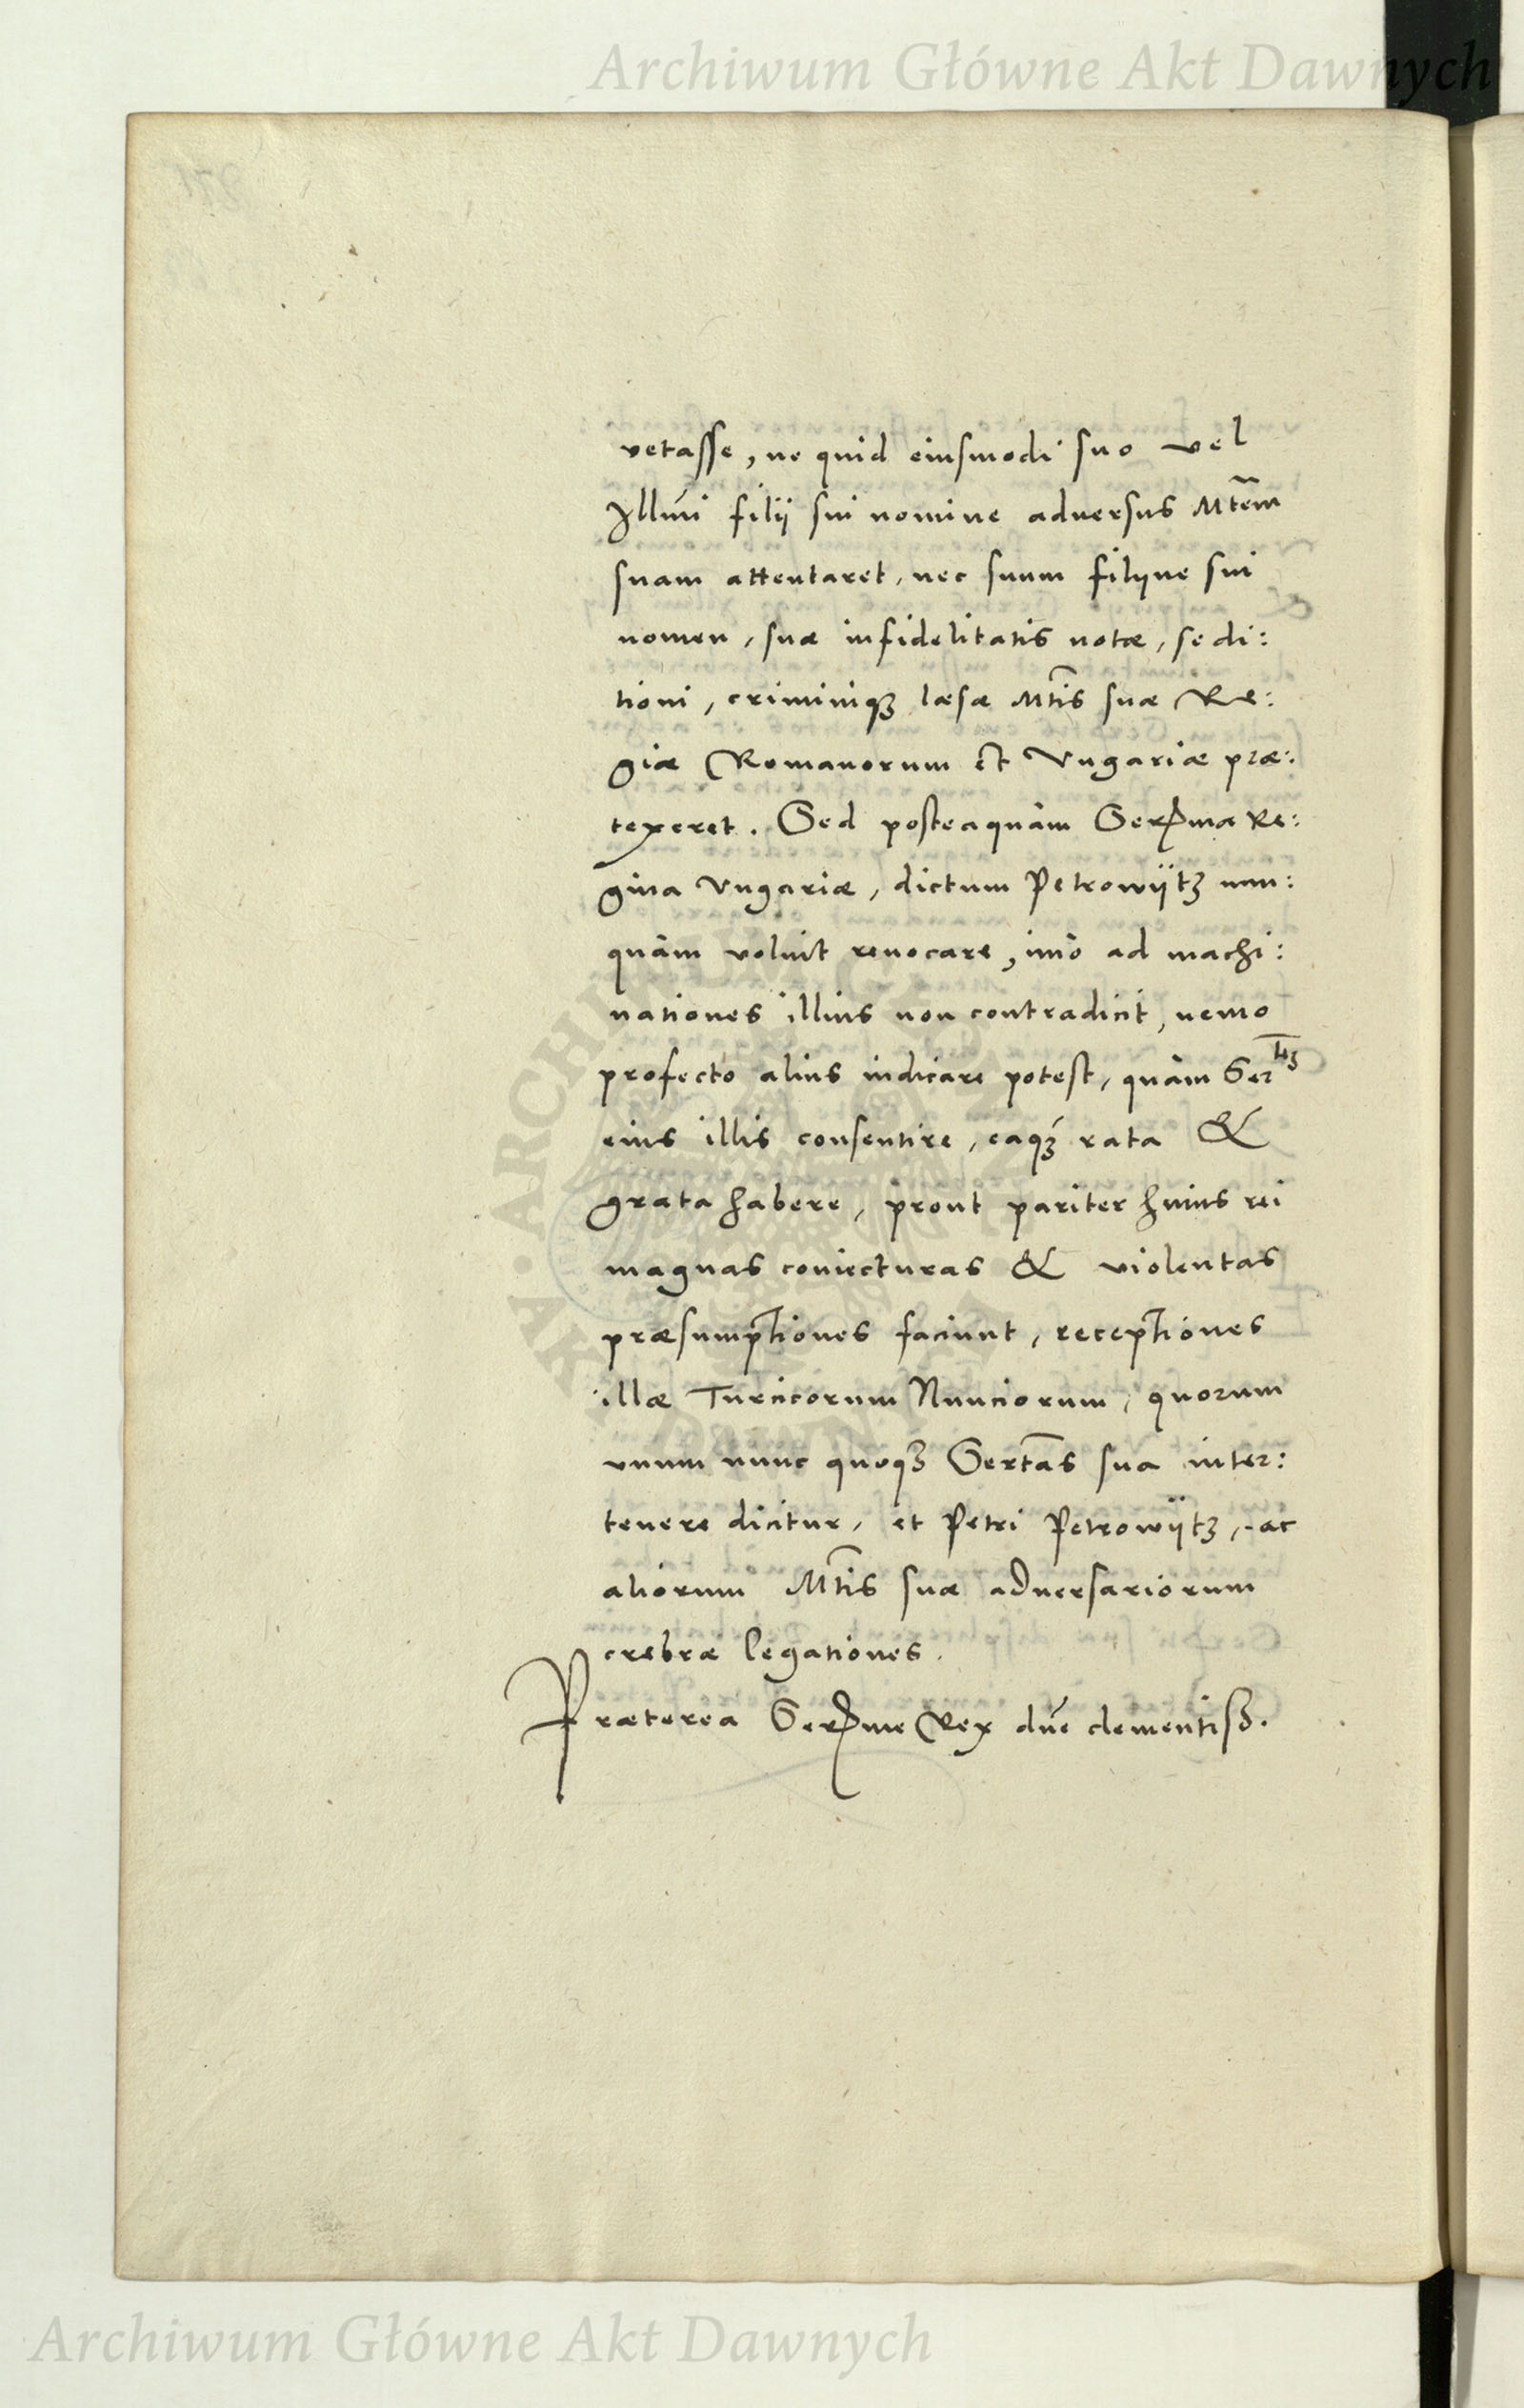 Archiwum Główne Akt Dawnych
vetasse, ne quid eiusmodi suo vel
Illmi filij sui nomine aduersus Mtem
suam attentaret, nec suum filijne sui
nomen, suæ infidelitatis notæ, sedi:
tioni, criminiqꝫ læsæ Mtis suæ Re:
giæ Romanorum et Vngariæ præ:
texeret. Sed posteaquàm Serma Re:
gina Vngariæ, dictum Petrowijtz nun:
quàm voluit reuocare, imò ad machi:
nationes illius non contradicit, nemo
profecto alius iudicare potest, quàm Sertꝫ
eius illis consentire, eaqꝫ rata &
grata habere, prout pariter huius rei
magnas coniecturas & violentas
præsumptiones faciunt, receptiones
illæ Turcicorum Nunciorum, quorum
vnum nunc quoqꝫ Sertas sua inter:
tenere dicitur, et Petri Petrowijtz, ac
aliorum Mtis suæ aduersariorum
crebræ legationes.
Præterea Serme Rex dne clementiss.
Archiwum Główne Akt Dawnych